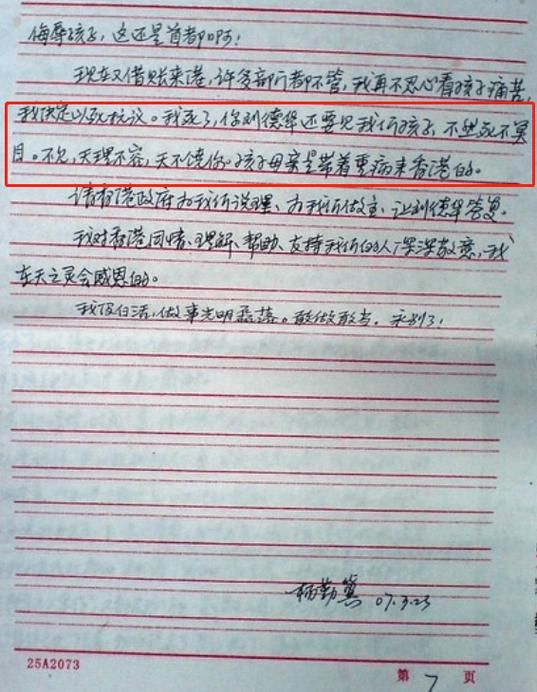 侮辱孩子，这还是首都啊！
现在又借账来港，许多部门都不管，我再不忍心看孩子痛苦，
我决定以死抗议。我死了，你刘德华还要见我们孩子，不然死不冥
目。不见，天理不容，天不饶你。孩子母亲是带着重病来香港的。
请香港政府为我们说理、为我们做主，让刘德华答复。
我对香港同情、理解、帮助、支持我们的人深深敬意，我
在天之灵会感恩的。
我没白活，做事光明磊落。敢做敢当。永别了！
杨勤冀 07.3.23
25A2073
第 7 页